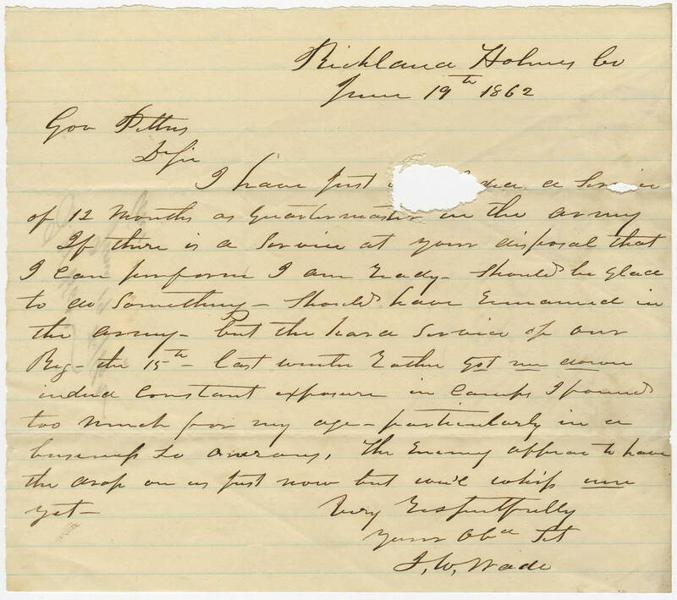 Richland Holmes Co
June 19th 1862
Gov Pettus
Dr Sir
I have just a Service
of 12 Months as Quartermaster in the army
If there is a Service at your disposal that
I can perform I am ready - Should be glad
to do Something - Should have Remained in
the army - but the hard Service of our
Reg - the 15th - last winter Rather got me down
indeed Constant exposure in Camps I found
too much for my age - particularly in a
business So The Enemy appear to have
the drop on us just now but we'll whip um
yet -
Very Respectfully
Yours Obt Svt
J. W. Wade